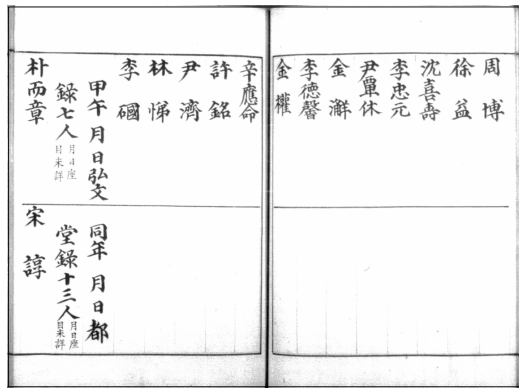 周博
徐益
沈喜壽
李忠元
尹覃休
金澥
李德馨
金權
辛應命
許銘
尹濟
林悌
李
甲午月日弘文
錄七人
月日座
目未詳
朴而章
同年月日都
堂錄十三人
月日座
目未詳
宋諄